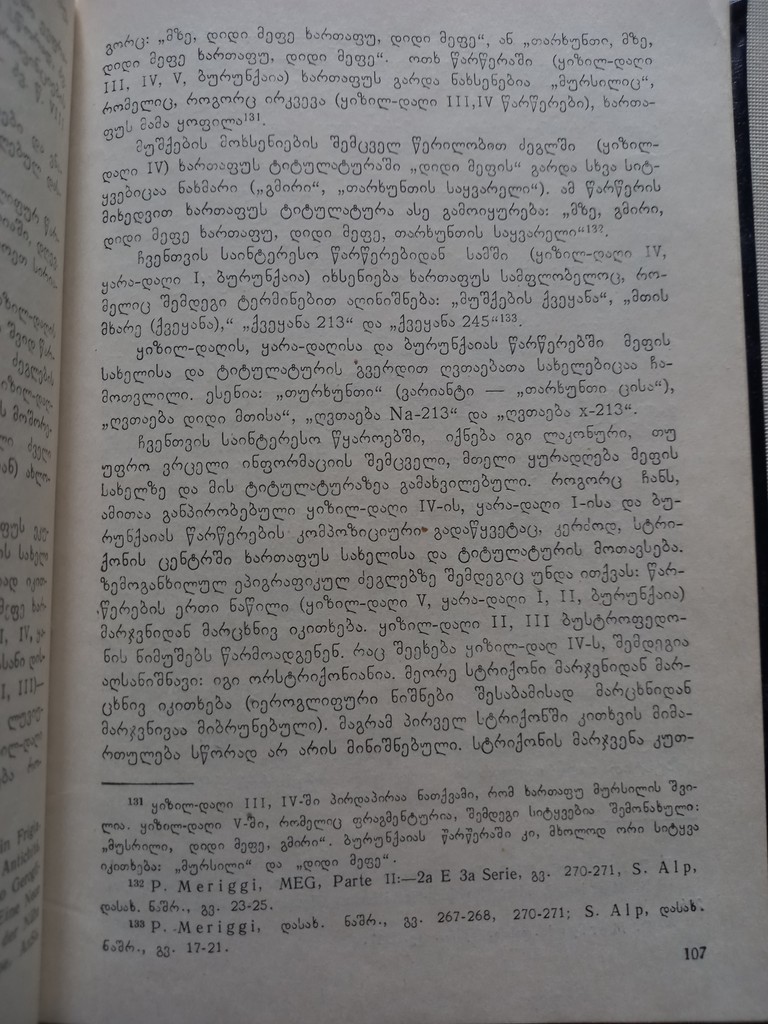 გორც: „მზე, დიდი მეფე ხართაფუ, დიდი მეფე“, ან „თარხუნთი, მზე,
დიდი მეფე ხართაფუ, დიდი მეფე“. ოთხ წარწერაში (ყიზილ-დაღი
III, IV, V, ბურუნქაია) ხართაფუს გარდა ნახსენებია „მურსილიც“,
რომელიც, როგორც ირკვევა (ყიზილ-დაღი III,IV წარწერები), ხართა-
ფუს მამა ყოფილა¹³¹.
მუშქების მოხსენიების შემცველ წერილობით ძეგლში (ყიზილ-
დაღი IV) ხართაფუს ტიტულატურაში „დიდი მეფის“ გარდა სხვა სიტ-
ყვებიცაა ნახმარი („გმირი“, „თარხუნთის საყვარელი“). ამ წარწერის
მიხედვით ხართაფუს ტიტულატურა ასე გამოიყურება: „მზე, გმირი,
დიდი მეფე ხართაფუ, დიდი მეფე, თარხუნთის საყვარელი“¹³².
ჩვენთვის საინტერესო წარწერებიდან სამში (ყიზილ-დაღი IV,
ყარა-დაღი I, ბურუნქაია) იხსენიება ხართაფუს სამფლობელოც, რო-
მელიც შემდეგი ტერმინებით აღინიშნება: „მუშქების ქვეყანა“, „მთის
მხარე (ქვეყანა),“ „ქვეყანა 213“ და „ქვეყანა 245“¹³³.
ყიზილ-დაღის, ყარა-დაღისა და ბურუნქაიას წარწერებში მეფის
სახელისა და ტიტულატურის გვერდით ღვთაებათა სახელებიცაა ჩა-
მოთვლილი. ესენია: „თურხუნთი“ (ვარიანტი — „თარხუნთი ცისა“),
„ღვთაება დიდი მთისა“, „ღვთაება Na-213“ და „ღვთაება x-213“.
ჩვენთვის საინტერესო წყაროებში, იქნება იგი ლაკონური, თუ
უფრო ვრცელი ინფორმაციის შემცველი, მთელი ყურადღება მეფის
სახელზე და მის ტიტულატურაზეა გამახვილებული. როგორც ჩანს,
ამითაა განპირობებული ყიზილ-დაღი IV-ის, ყარა-დაღი I-ისა და ბუ-
რუნქაიას წარწერების კომპოზიციური გადაწყვეტაც, კერძოდ, სტრი-
ქონის ცენტრში ხართაფუს სახელისა და ტიტულატურის მოთავსება.
ზემოგანხილულ ეპიგრაფიკულ ძეგლებზე შემდეგიც უნდა ითქვას: წარ-
წერების ერთი ნაწილი (ყიზილ-დაღი V, ყარა-დაღი I, II, ბურუნქაია)
მარჯვნიდან მარცხნივ იკითხება. ყიზილ-დაღი II, III ბუსტროფედო-
ნის ნიმუშებს წარმოადგენენ. რაც შეეხება ყიზილ-დაღ IV-ს, შემდეგია
აღსანიშნავი: იგი ორსტრიქონიანია. მეორე სტრიქონი მარჯვნიდან მარ-
ცხნივ იკითხება (იეროგლიფური ნიშნები შესაბამისად მარცხნიდან
მარჯვნივაა მიბრუნებული). მაგრამ პირველ სტრიქონში კითხვის მიმა-
რთულება სწორად არ არის მინიშნებული. სტრიქონის მარჯვენა კუთ-
¹³¹ ყიზილ-დაღი III, IV-ში პირდაპირაა ნათქვამი, რომ ხართაფუ მურსილის შვი-
ლია. ყიზილ-დაღი V-ში, რომელიც ფრაგმენტურია, შემდეგი სიტყვებია შემონახული:
„მუსრილი, დიდი მეფე, გმირი“. ბურუნქაიას წარწერაში კი, მხოლოდ ორი სიტყვა
იკითხება: „მურსილი“ და „დიდი მეფე“.
¹³² P. Meriggi, MEG, Parte II:—2a E 3a Serie, გვ. 270-271, S. Alp,
დასახ. ნაშრ., გვ. 23-25.
¹³³ P. Meriggi, დასახ. ნაშრ., გვ. 267-268, 270-271; S. Alp, დასახ.
ნაშრ., გვ. 17-21.
107